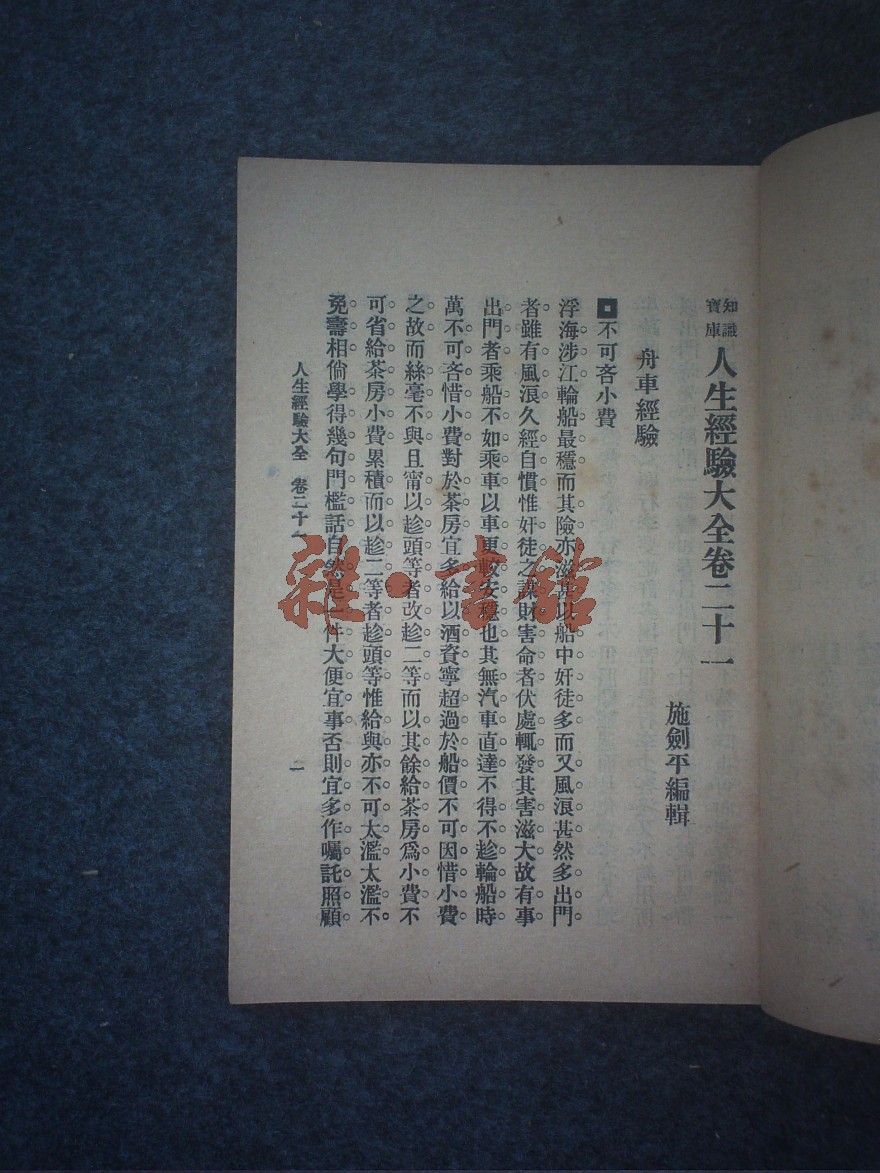 知識
寶庫
人生經驗大全卷二十一
施劍平編輯
舟車經驗
不可吝小費
浮海涉江輪船最穩而其險亦滋甚以船中奸徒多而又風浪甚然多出門
者雖有風浪久經自慣惟奸徒之謀財害命者伏處輒發其害滋大故有事
出門者乘船不如乘車以車更較安穩也其無汽車直達不得不趁輪船時
萬不可吝惜小費對於茶房宜多給以酒資寧超過於船價不可因惜小費
之故而絲毫不與且甯以趁頭等者改趁二等而以其餘給茶房爲小費不
可省給茶房小費累積而以趁二等者趁頭等惟給與亦不可太濫太濫不
免壽相倘學得幾句門檻話自然是一件大便宜事否則宜多作囑託照顧
人生經驗大全 卷二十一
一
雜·書館